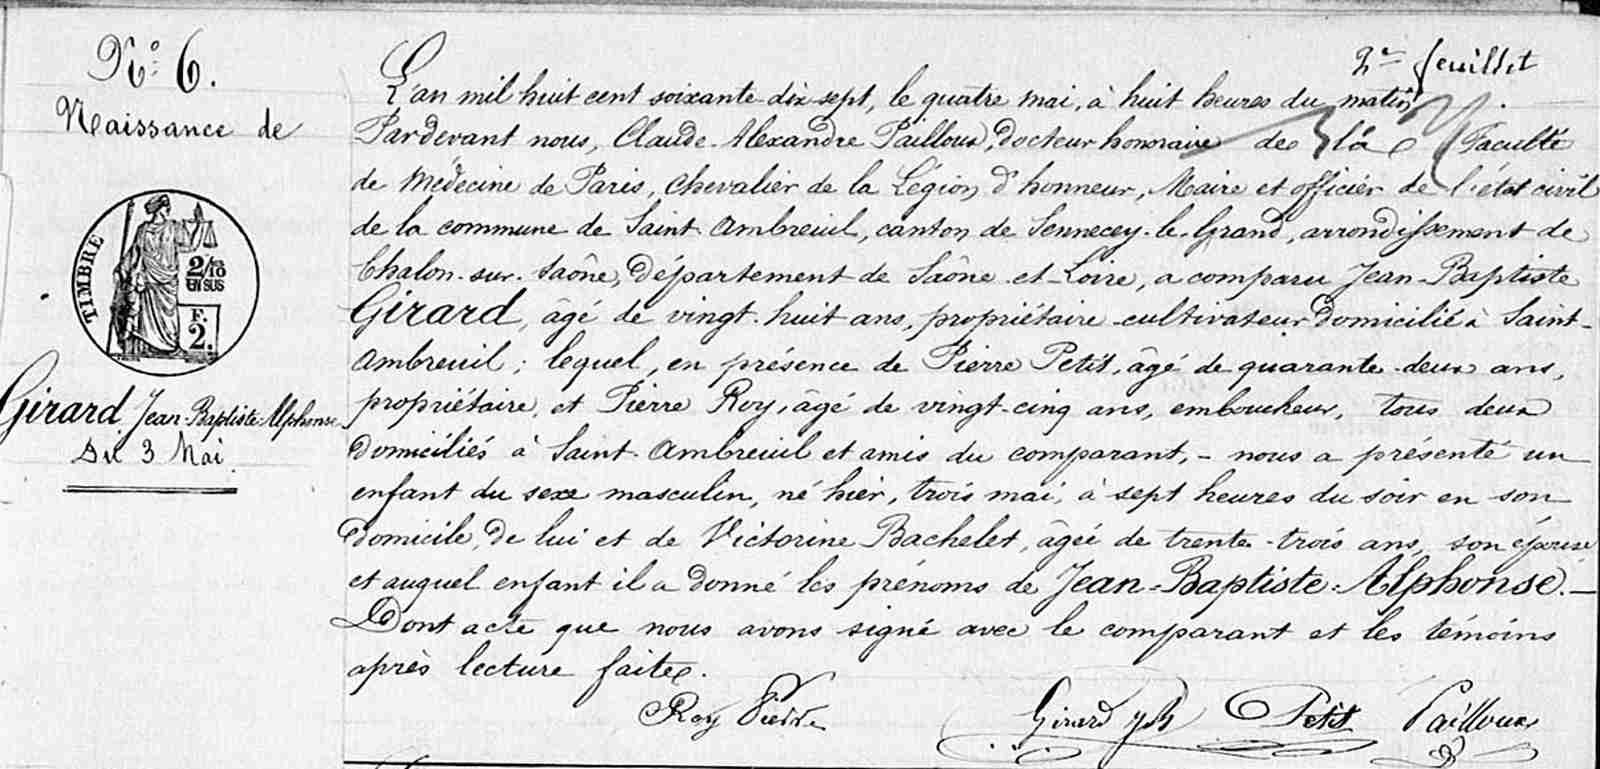 2me feuillet
N° 6.
Naissance de
TIMBRE
2/10
EN SUS
F.
2.
Girard, Jean-Baptiste-Alphonse
Du 3 Mai
L'an mil huit cent soixante dix sept, le quatre mai, à huit heures du matin,
Pardevant nous, Claude-Alexandre Pailloux, docteur honoraire de la Faculté
de Médecine de Paris, Chevalier de la Légion d'honneur, Maire et officier de l'état civil
de la commune de Saint-Ambreuil, canton de Sennecey-le-Grand, arrondissement de
Chalon-sur-Saône, département de Saône-et-Loire, a comparu Jean-Baptiste
Girard, âgé de vingt-huit ans, propriétaire-cultivateur domicilié à Saint-
Ambreuil ; lequel, en présence de Pierre Petit, âgé de quarante-deux ans,
propriétaire, et Pierre Roy, âgé de vingt-cinq ans, emboucheur, tous deux
domiciliés à Saint-Ambreuil et amis du comparant, - nous a présenté un
enfant du sexe masculin, né hier, trois mai, à sept heures du soir en son
domicile, de lui et de Victorine Bachelet, âgée de trente-trois ans, son épouse
et auquel enfant il a donné les prénoms de Jean-Baptiste-Alphonse. —
Dont acte que nous avons signé avec le comparant et les témoins
après lecture faite.
Roy Pierre Girard JB Petit Pailloux